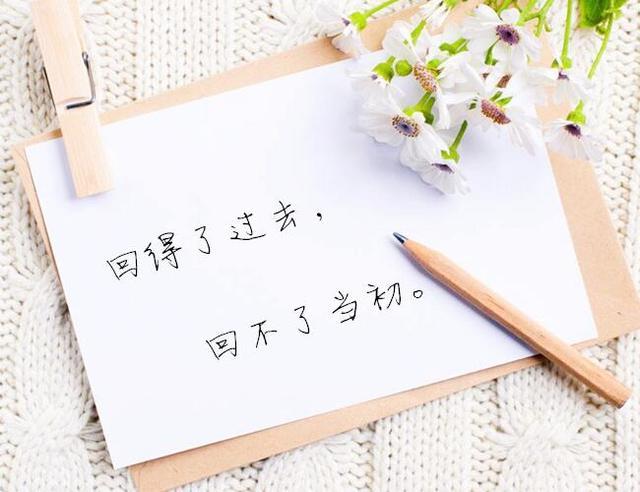 回得了过去，
回不了当初。